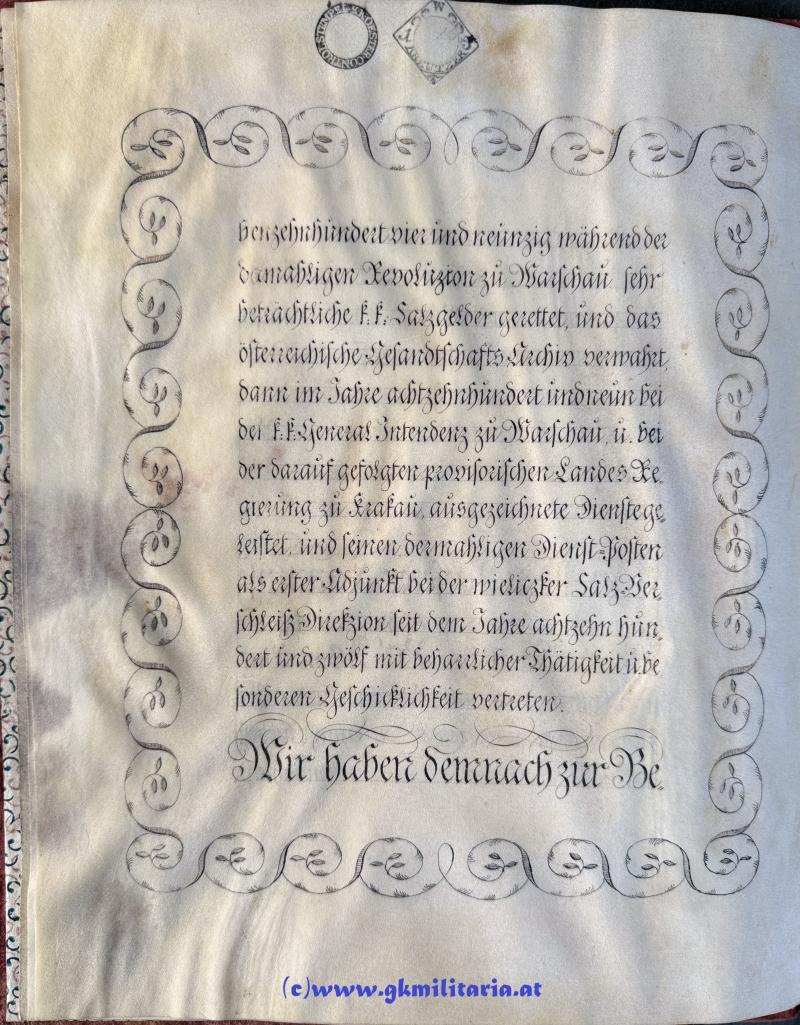 STEMPEL K. KOESTER. CONTROL
W
benzehnhundert vier und neunzig während der
damahligen Revoluzion zu Warschau sehr
beträchtliche k. k. Salzgelder gerettet, und das
österreichische Gesandtschafts-Archiv verwahrt,
dann im Jahre achtzehnhundert und neun bei
der k. k. General Intendenz zu Warschau, u. bei
der darauf gefolgten provisorischen Landes Re-
gierung zu Krakau, ausgezeichnete Dienste ge-
leistet, und seinen dermahligen Dienst-Posten
als erster Adjunkt bei der wieliczker Salz-Ver-
schleiß Direkzion seit dem Jahre achtzehn hun-
dert und zwölf mit beharrlicher Thätigkeit u. be-
sonderen Geschicklichkeit vertreten.
Wir haben demnach zur Be-
(c)www.gkmilitaria.at